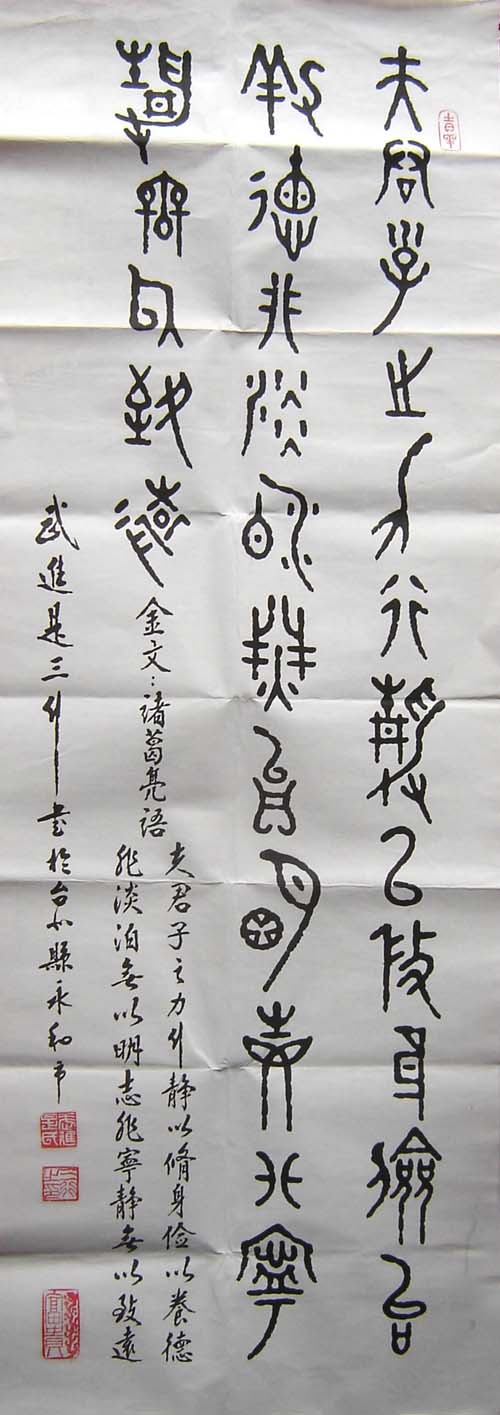 夫君子之力行靜以脩身儉以
養德非淡泊無以明志非寧
靜無以致遠
金文:諸葛亮語
夫君子之力行静以脩身儉以養德
非淡泊無以明志非寧静無以致遠
武進是三行書於台北縣永和市
武進是氏